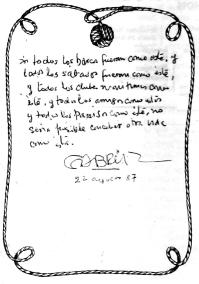 si todos los barcos fueran como éste, y
todos los sábados fueran como este,
y todos los clubes nauticos como
este, y todos los amigos como estos
y todos los como éste, no
sería posible otra vida
como ésta.
GABRIEL
22 agosto 87